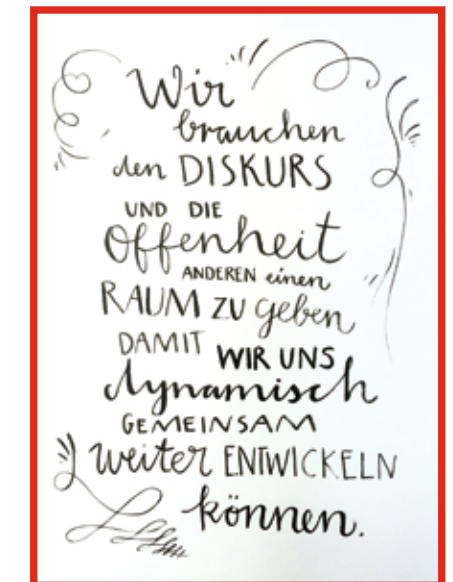 Wir
brauchen
den DISKURS
UND DIE
Offenheit
ANDEREN einen
RAUM ZU geben
DAMIT WIR UNS
dynamisch
GEMEINSAM
weiter ENTWICKELN
können.